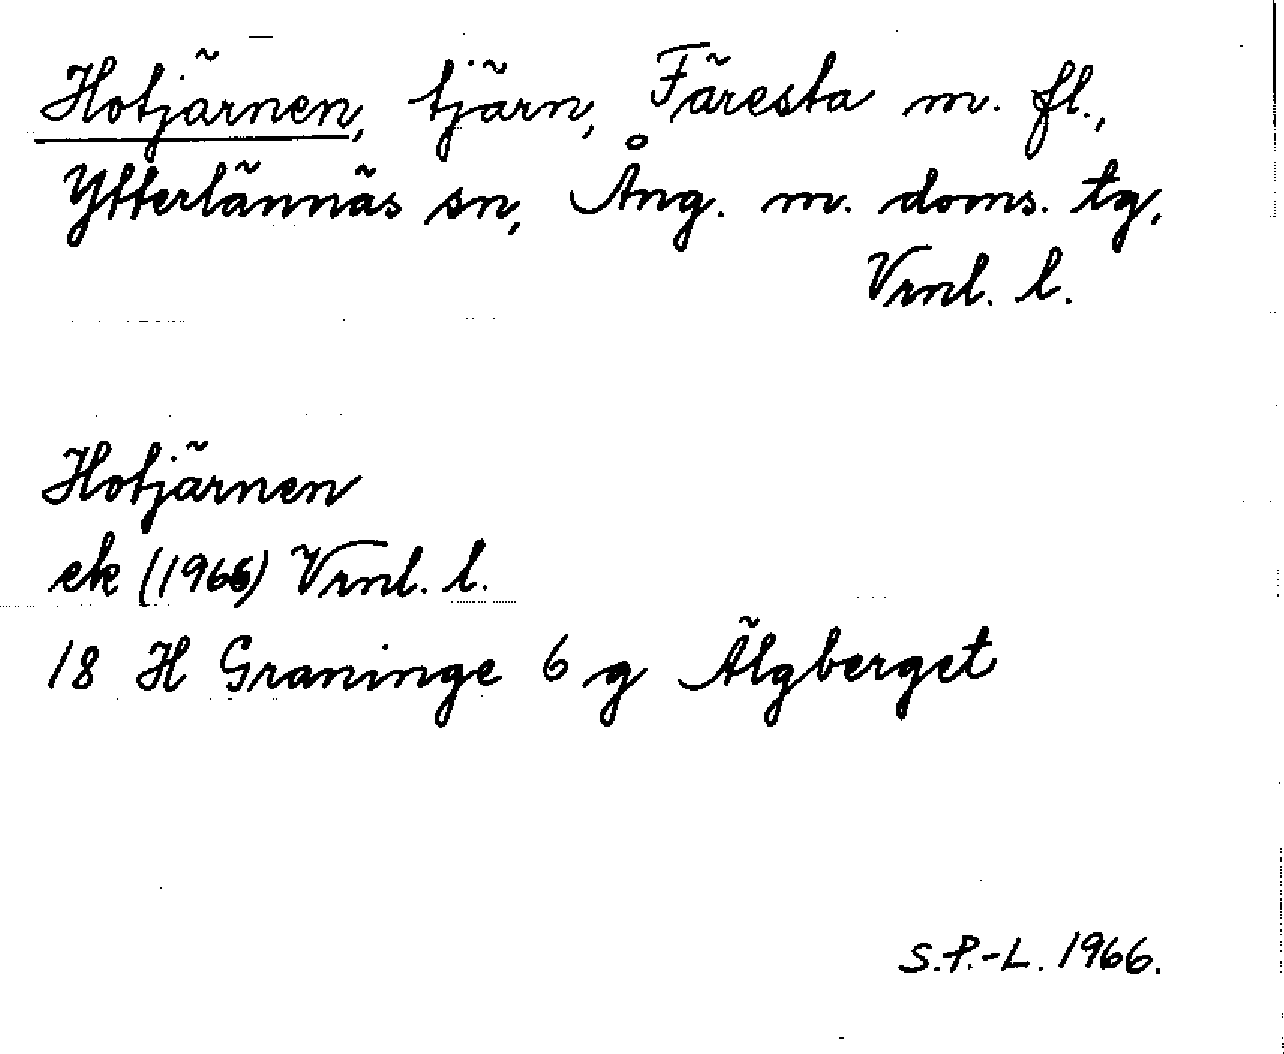 Hotjärnen, tjärn, Färesta m. fl.,
Ytterlännäs sn, Ång. m. doms. tg,
Vrnl. l.
Hotjärnen
ek (1966) Vrnl. l.
18 H Graninge 6 g Älgberget
S.P.-L. 1966.